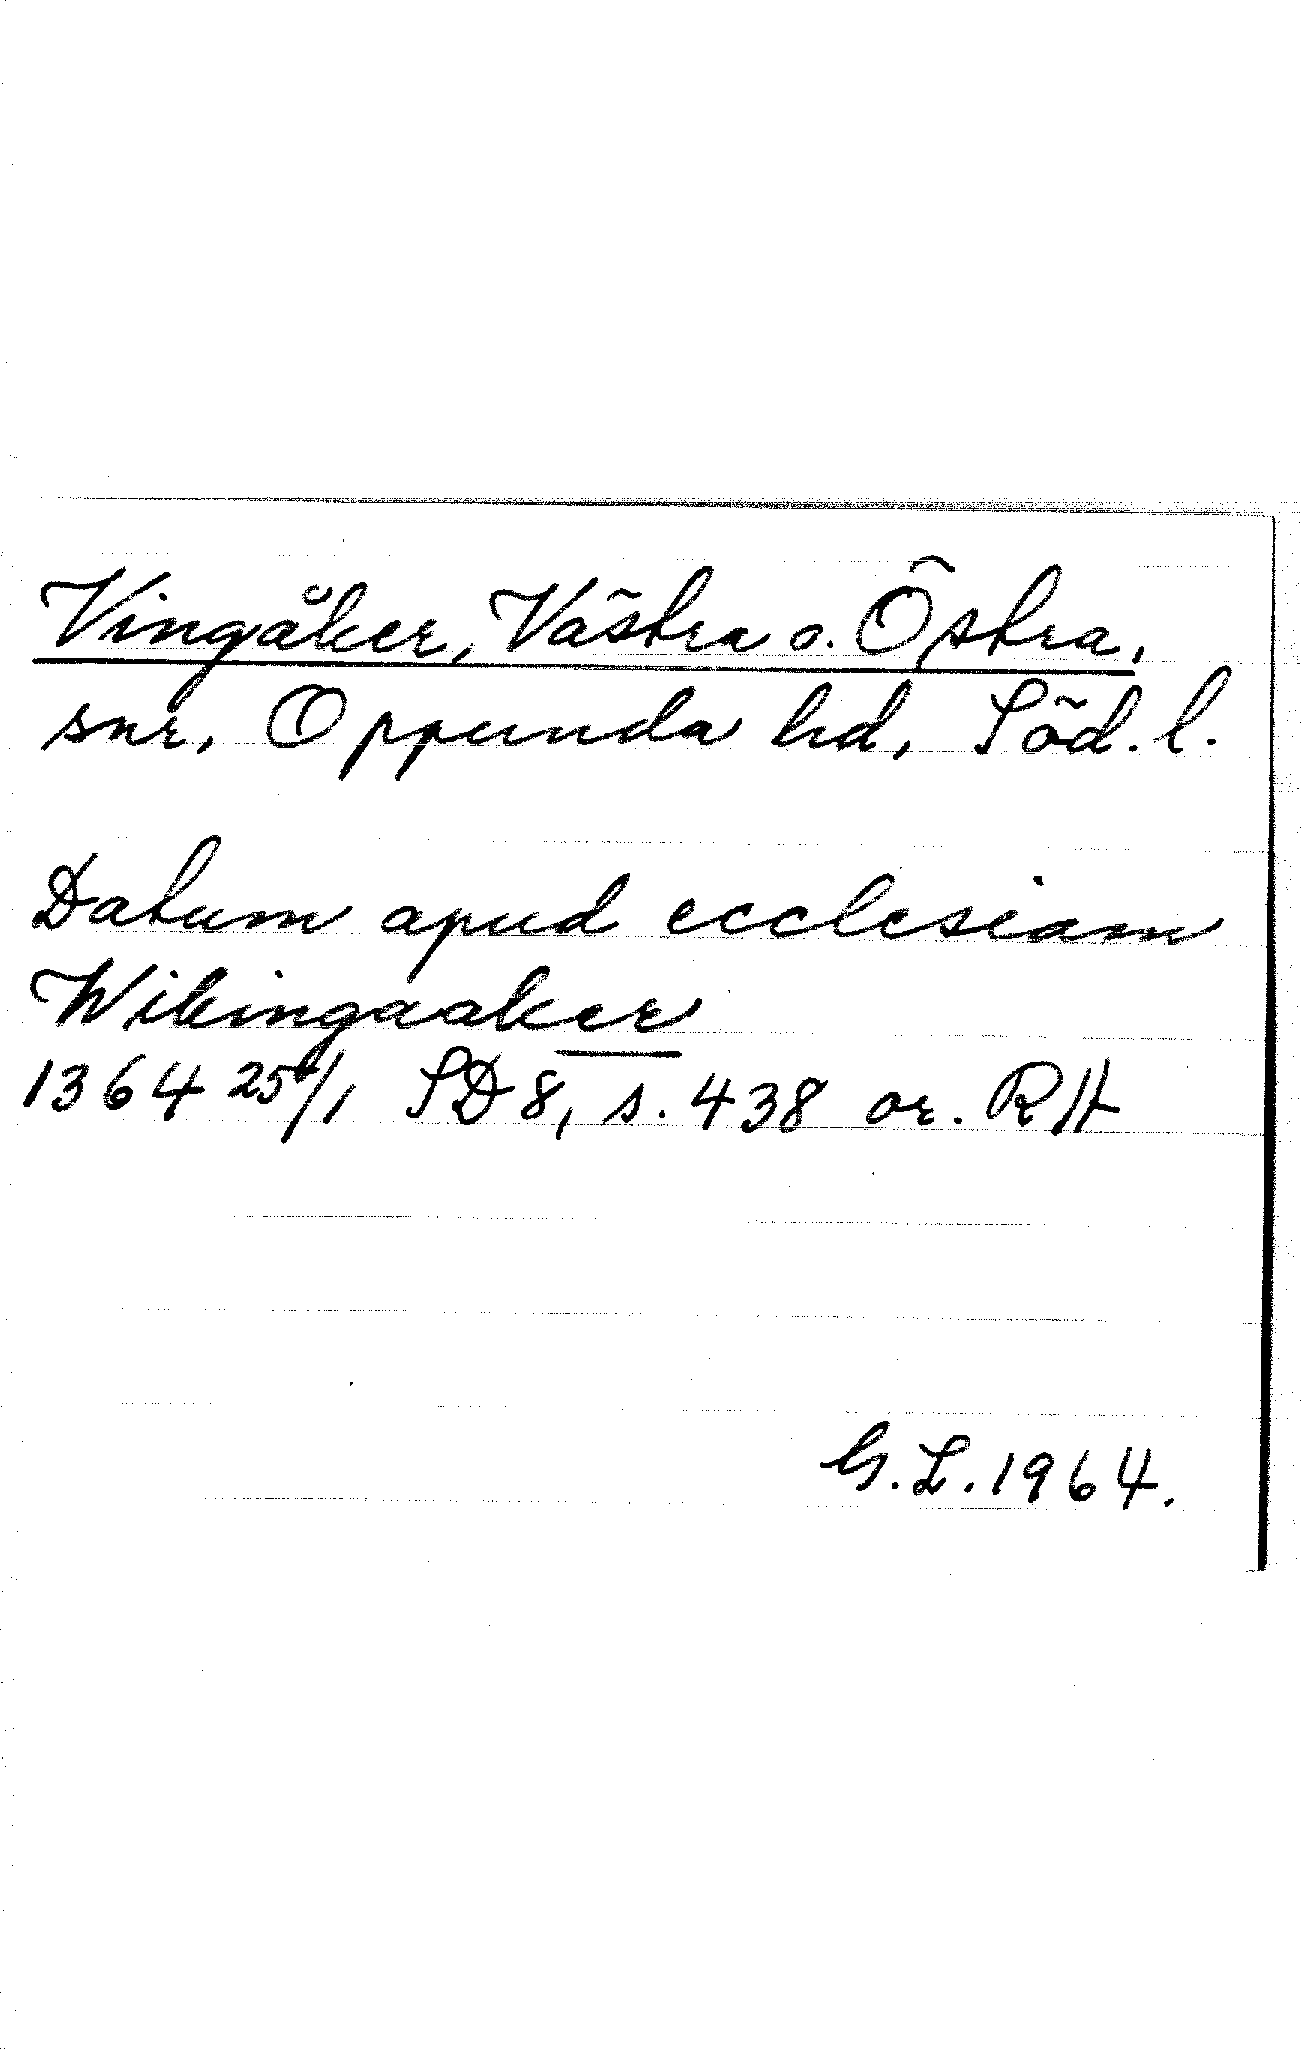 Vingåker, Västra o. Östra,
snr, Oppunda hd, Söd. l.
Datum apud ecclesiam
Wikingaaker
1364 25/1 SD 8, s. 438 or. RA
G. L. 1964.